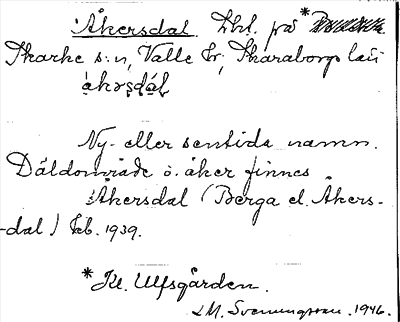 Åkersdal Lht. på *
Skarke s:n, Valle hr, Skaraborgs län
Ny- eller sentida namn.
Däldområde o. åker finnes
Åkersdal (Berga el. Åkers-
-dal) Eb. 1939.
*Kl. Ulfsgården.
LM. Svenungsson. 1946.